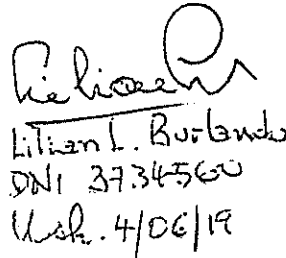 Lilian L. Burlando
DNI 3734560
Ush. 4/06/19